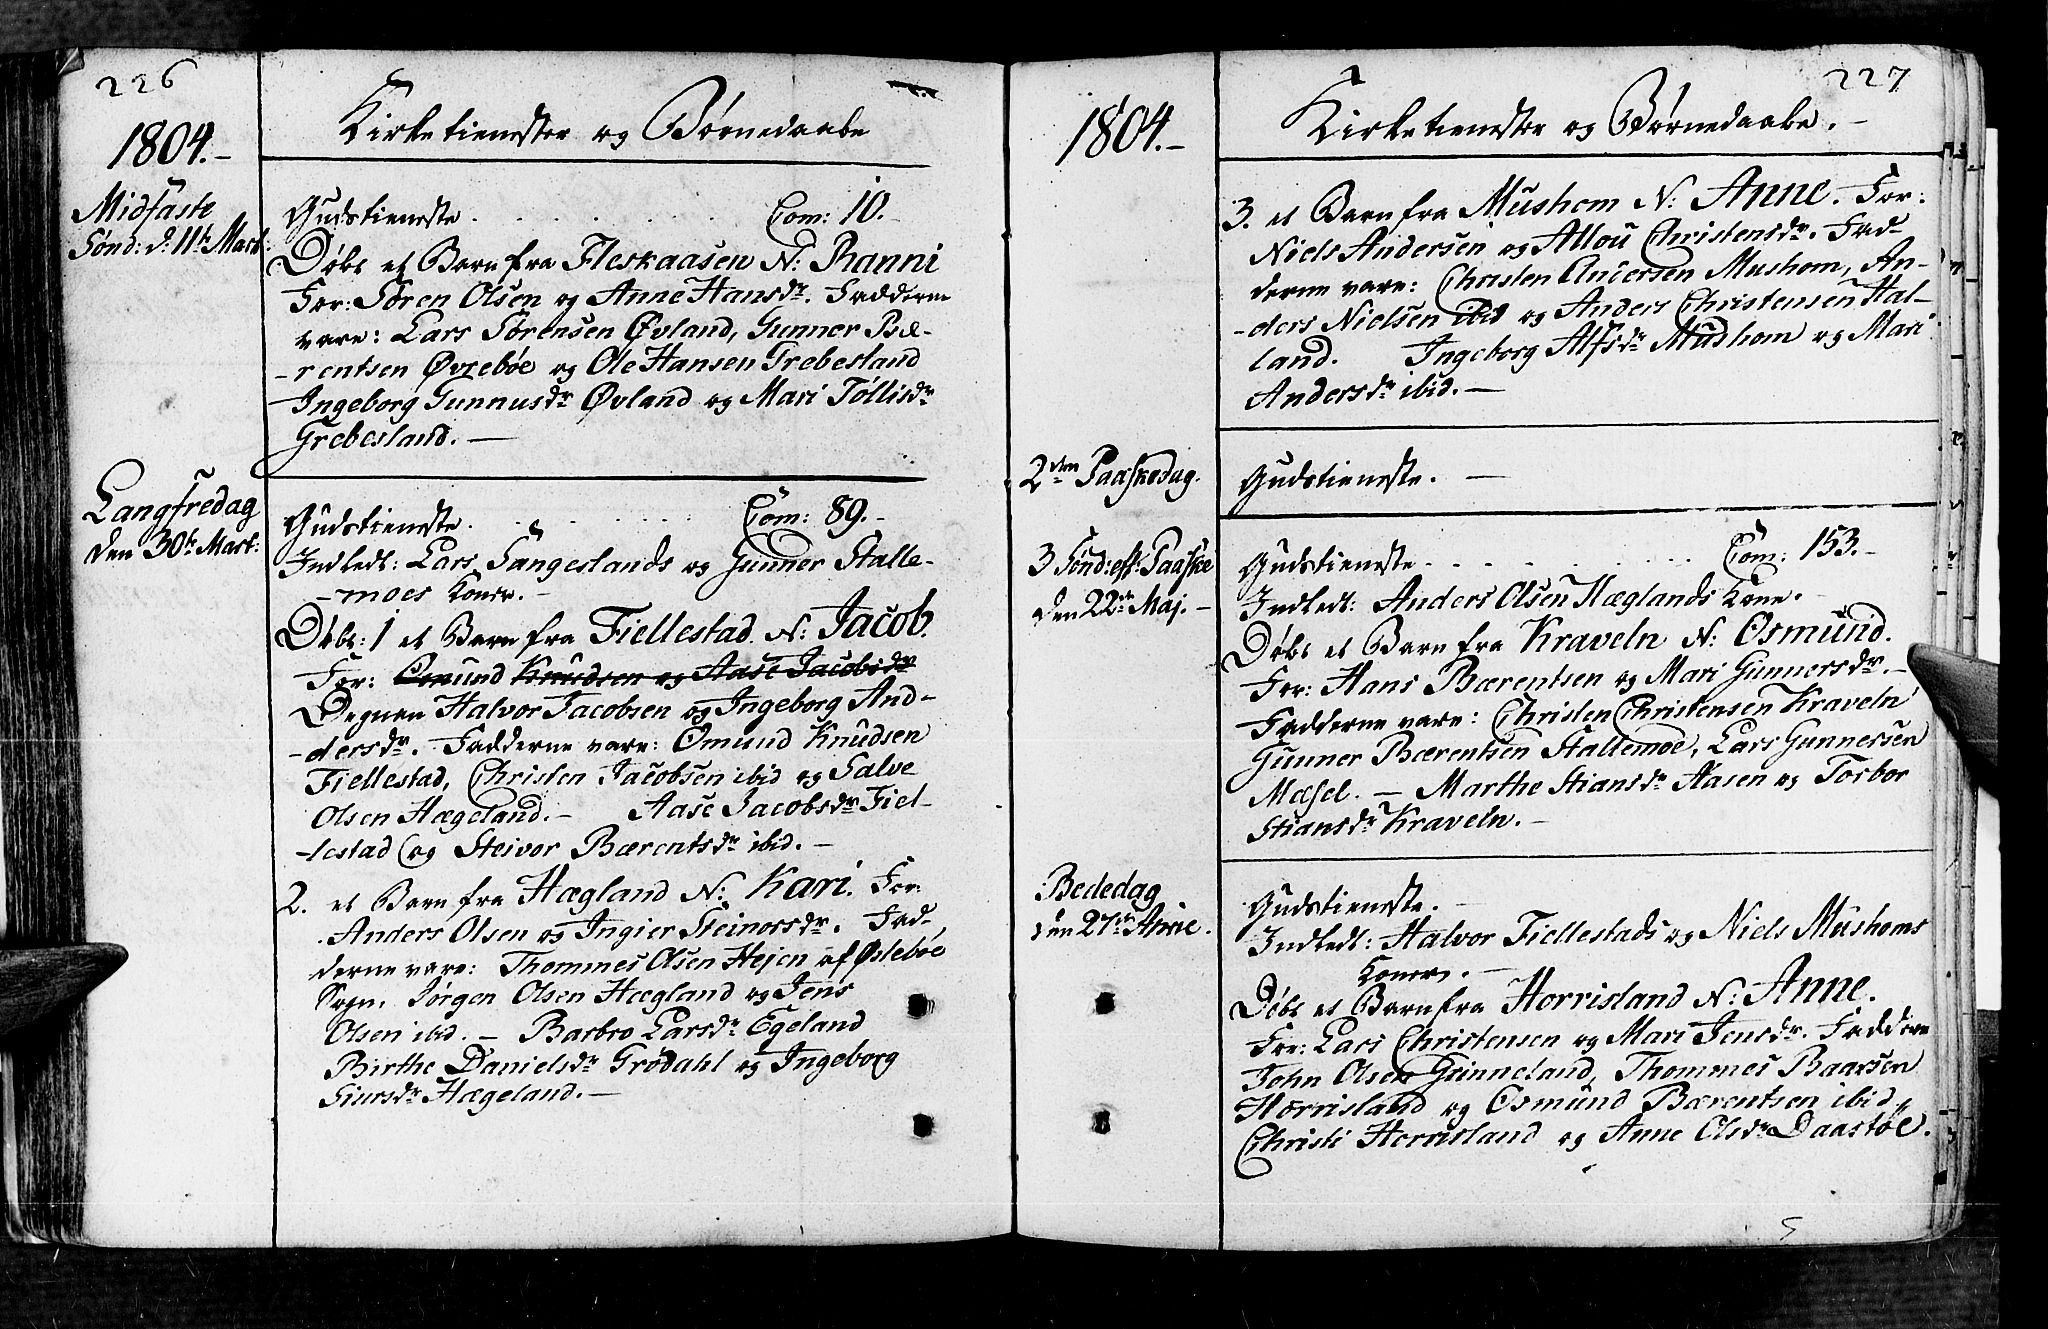 226
1804.-
Kirketienester og Børnedaabe
Midfaste
Sønd: d: 11te Mart:
Gudstieneste . . . . . . . Com: 10.-
Døbt et Barn fra Fleskaasen N: Ranni
For: Søren Olsen og Anne Hansdr. Fadderne
vare: Lars Sørensen Øvland, Gunner Bæ-
-rentsen Øvrebøe og Ole Hansen Grebesland
Ingeborg Gunnusdr Øvland og Mari Tøllisdr
Grebesland. -
Langfredag
den 30te Mart:
Gudstieneste. . . . . . . . Com: 89.-
Indledt: Lars Fangeslands og Gunner Stalle-
-moes Koner. -
Døbt: 1 et Barn fra Fiellestad. N: Jacob.
For: Osmund Knudsen og Aase Jacobsdr
Degnen Halvor Jacobsen og Ingeborg And-
-dersdr. Fadderne vare: Omund Knudsen
Fiellestad, Christen Jacobsen ibid og Salve
Olsen Hægeland. - Aase Jacobsdr Fiel-
-lestad og Steivor Bærentsdr ibid. -
2. et Barn fra Hægland N: Kari. For:
Anders Olsen og Ingier Steinorsdr. Fad-
derne vare: Thommes Olsen Hejen af Øslebøe
Sogn, Jørgen Olsen Hægland og Jens
Olsen ibid. - Barbro Larsdr Egeland
Birthe Danielsdr Grødahl og Ingeborg
Siursdr Hægeland. -
227
1804.-
Kirketienester og Børnedaabe. -
3. et Barn fra Mushom N: Anne. For:
Niels Andersen og Allou Christensdr. Fad-
derne vare: Christen Andersen Mushom, An-
-ders Nielsen ibid og Anders Christensen Hal-
land. Ingeborg Alfsdr Mushom og Mari
Andersdr ibid. -
2den Paaskedag.
Gudstieneste. -
3 Sønd: eft: Paaske
den 22de Maj. -
Gudstieneste . . . . . . . Com: 153.-
Indledt: Anders Olsen Hæglands Kone.
Døbt et Barn fra Kraveln N: Osmund.
For: Hans Bærentsen og Mari Gunnersdr. -
Fadderne vare: Christen Christensen Kraveln
Gunner Bærentsen Stallemoe, Lars Gunnersen
Mæsel. - Marthe Stiansdr Aasen og Torbor
Stiansdr Kraveln. -
Bededag
den 27de Aprie.
Gudstieneste. -
Indledt: Halvor Fiellestads og Niels Mushoms
Koner. -
Døbt et Barn fra Horrisland N: Anne.
For: Lars Christensen og Mari Jensdr. Faddere
John Olsen Grinneland, Thommes Baarsen
Horrisland og Osmund Bærentsen ibid,
Christi Horrisland og Anne Olsdr Daastøl.